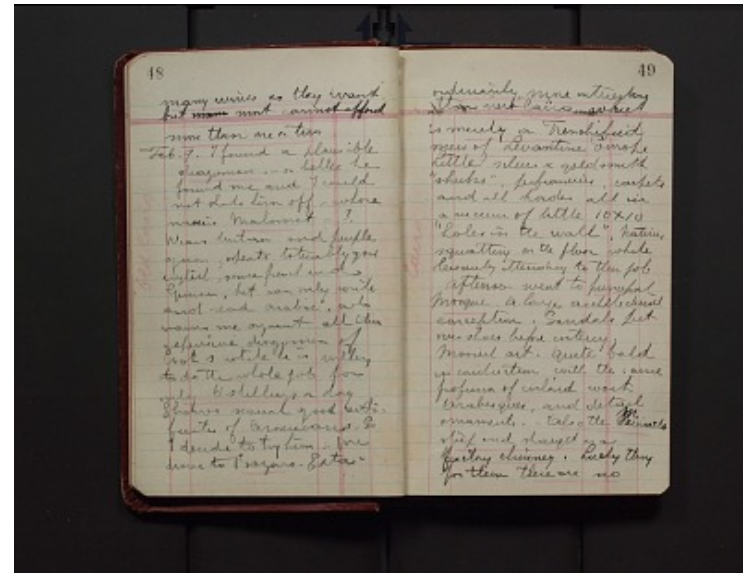 48
many wives as they want
but most cannot afford
more than one or two
Feb. 9. I found a plausible
dragoman — or better he
found me and I could
not shake him off — whose
name is Mahomet !
Wears turban and purple
gown, speaks tolerably good
english, some french and
German, but can only write
and read arabic, who
warns me against all these
expensive dragomen of
hotels while he is willing
to do the whole job for
only 6 shillings a day
Shows several good certi-
ficates of Americans. So
I decide to try him. — we
drive to Bazaars. Extra-
Old Cairo
49
ordinarily more interesting
than new Cairo which
is merely a Frenchified
mess of Levantine Europe
Little silver & goldsmith
"shucks", perfumeries, carpets
and all hordes all in
a recess of little 10x10
"holes in the wall", natives
squatting on the floor while
leisurely attending to their job
Afternoon went to principal
Mosque. A large architectural
conception. Sandals put
over shoes before entering.
Moorish art. Quite bald
in combination with the
profusion of inlaid work
arabesques, and detail
ornaments. Also the Minarets
stiff and shaped as a
factory chimney. Lucky thing
for them there are no
Cairo